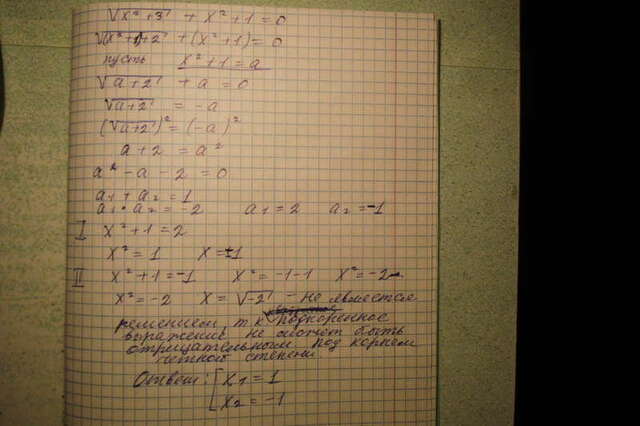 √(x²+3) + x²+1 = 0
√((x²+1)+2) + (x²+1) = 0
пусть x²+1 = a
√(a+2) + a = 0
√(a+2) = -a
(√(a+2))² = (-a)²
a + 2 = a²
a² - a - 2 = 0
a₁ + a₂ = 1
a₁ · a₂ = -2 a₁ = 2 a₂ = -1
I x² + 1 = 2
x² = 1 x = ±1
II x² + 1 = -1 x² = -1-1 x² = -2
x² = -2 x = √-2 - не является
решением т.к. подкоренное
выражение не может быть
отрицательным под корнем
четной степени
Ответ: [ x₁ = 1
x₂ = -1